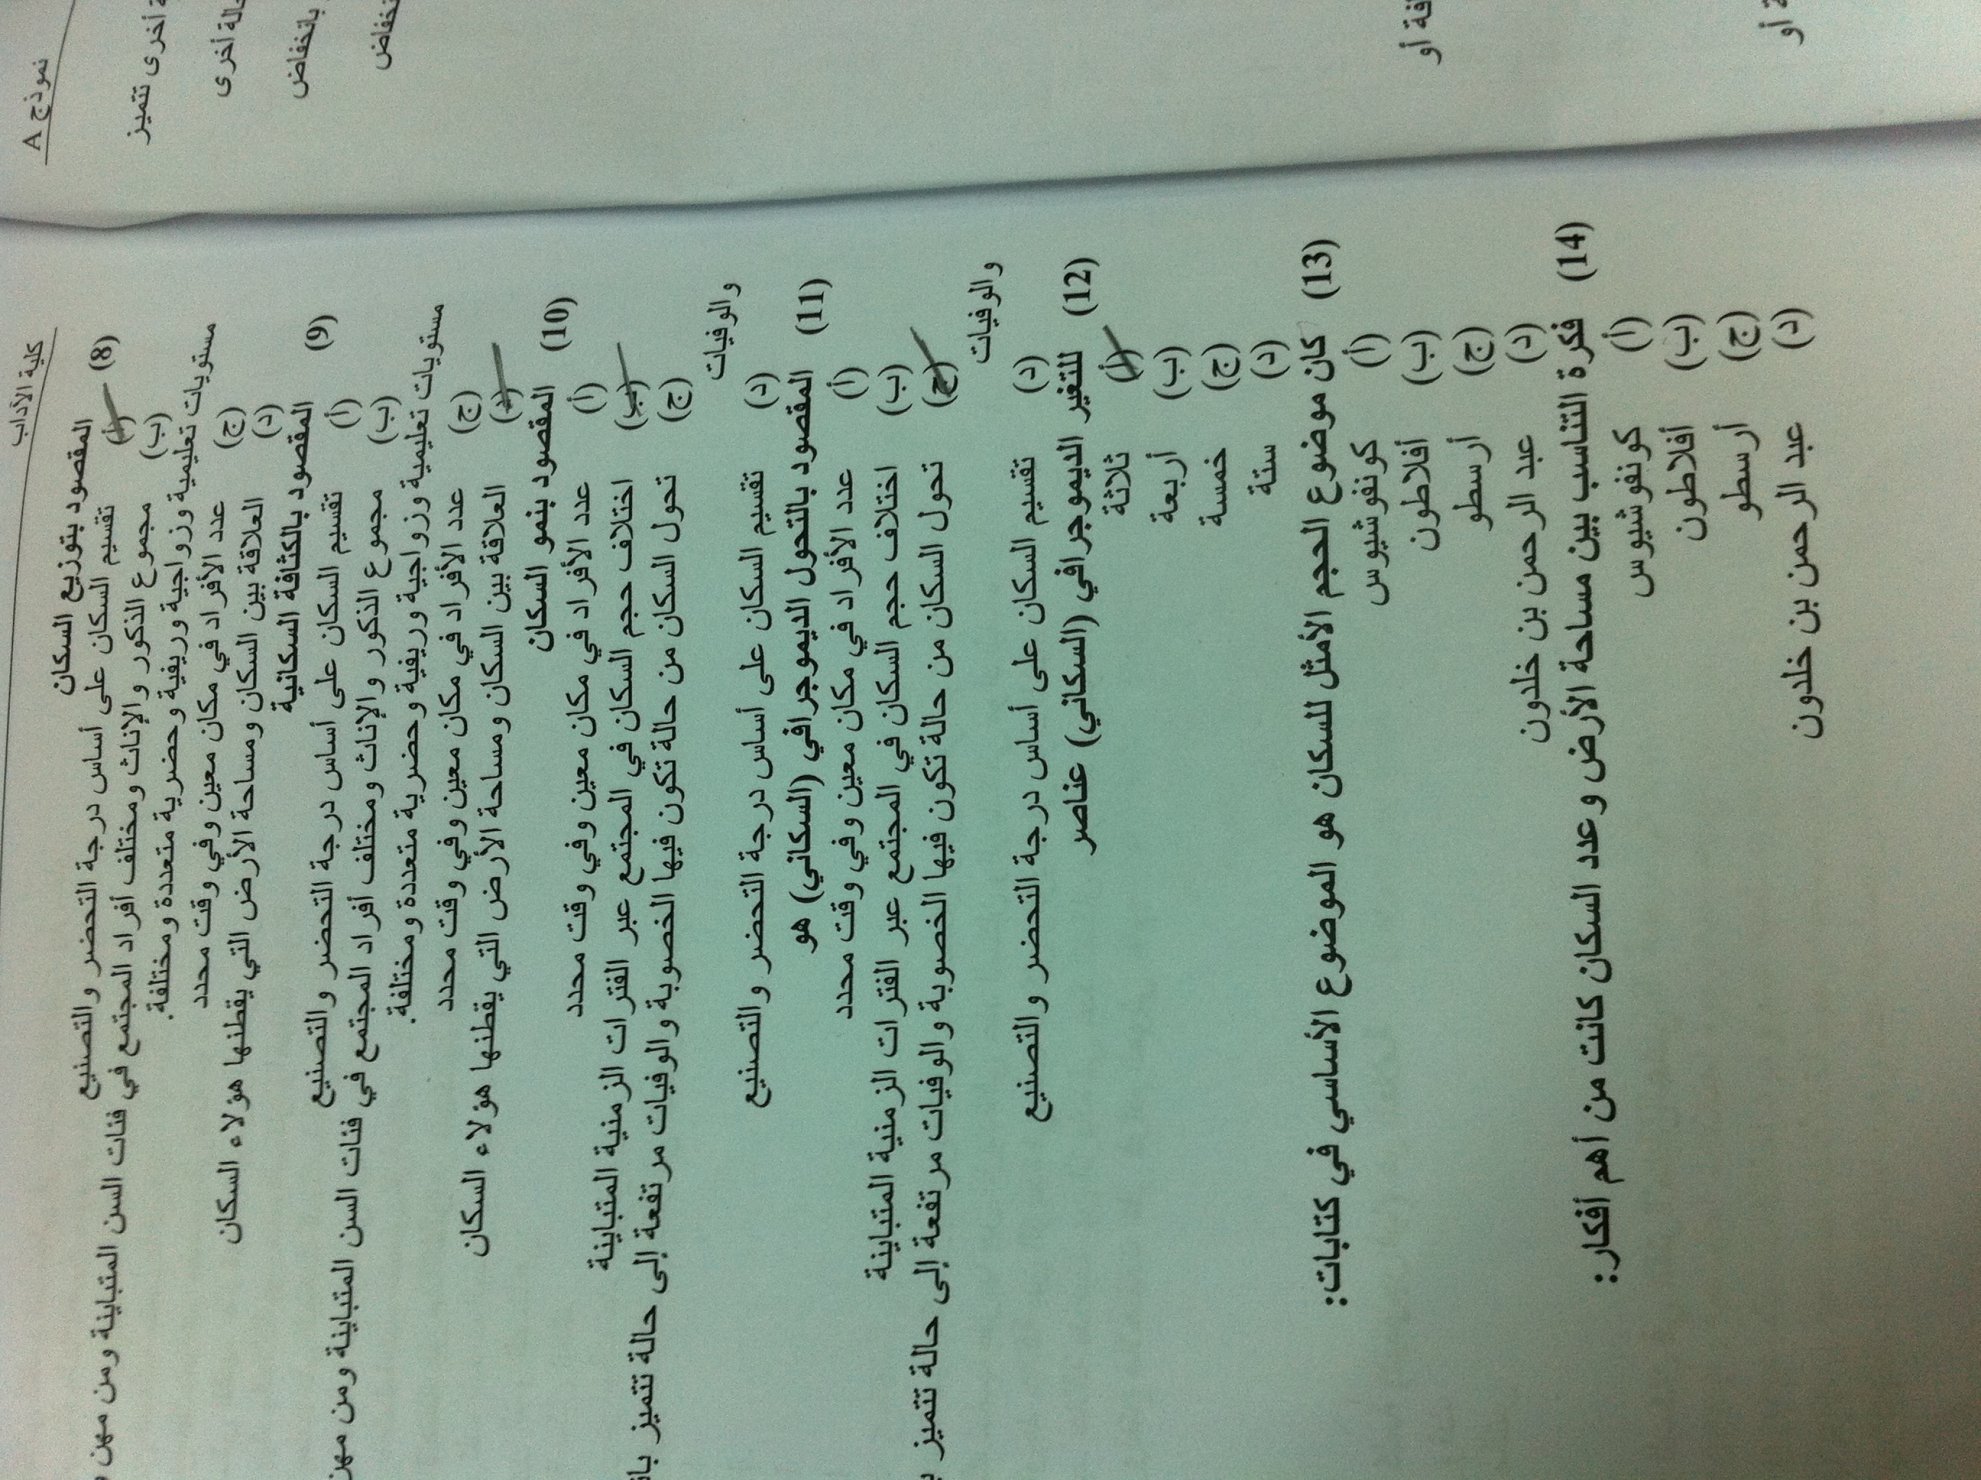 كلية الآداب
(8) المقصود بتوزيع السكان
(أ) تقسيم السكان على أساس درجة التحضر والتصنيع
(ب) مجموع الذكور والإناث ومختلف أفراد المجتمع في فئات السن المتباينة ومن مهن
مستويات تعليمية وزواجية وريفية وحضرية متعددة ومختلفة.
(ج) عدد الأفراد في مكان معين وفي وقت محدد
(د) العلاقة بين السكان ومساحة الأرض التي يقطنها هؤلاء السكان
(9) المقصود بالكثافة السكانية
(أ) تقسيم السكان على أساس درجة التحضر والتصنيع
(ب) مجموع الذكور والإناث ومختلف أفراد المجتمع في فئات السن المتباينة ومن مهن
مستويات تعليمية وزواجية وريفية وحضرية متعددة ومختلفة.
(ج) عدد الأفراد في مكان معين وفي وقت محدد
(د) العلاقة بين السكان ومساحة الأرض التي يقطنها هؤلاء السكان
(10) المقصود بنمو السكان
(أ) عدد الأفراد في مكان معين وفي وقت محدد
(ب) اختلاف حجم السكان في المجتمع عبر الفترات الزمنية المتباينة
(ج) تحول السكان من حالة تكون فيها الخصوبة والوفيات مرتفعة إلى حالة تتميز
والوفيات
(د) تقسيم السكان على أساس درجة التحضر والتصنيع
(11) المقصود بالتحول الديموجرافي (السكاني) هو
(أ) عدد الأفراد في مكان معين وفي وقت محدد
(ب) اختلاف حجم السكان في المجتمع عبر الفترات الزمنية المتباينة
(ج) تحول السكان من حالة تكون فيها الخصوبة والوفيات مرتفعة إلى حالة تتميز
والوفيات
(د) تقسيم السكان على أساس درجة التحضر والتصنيع
(12) للتغير الديموجرافي (السكاني) عناصر
(أ) ثلاثة
(ب) أربعة
(ج) خمسة
(د) ستة
(13) كان موضوع الحجم الأمثل للسكان هو الموضوع الأساسي في كتابات:
(أ) كونفوشيوس
(ب) أفلاطون
(ج) أرسطو
(د) عبد الرحمن بن خلدون
(14) فكرة التناسب بين مساحة الأرض وعدد السكان كانت من أهم أفكار:
(أ) كونفوشيوس
(ب) أفلاطون
(ج) أرسطو
(د) عبد الرحمن بن خلدون
نموذج A
أخرى تتميز
أخرى
بانخفاض
أو
أو